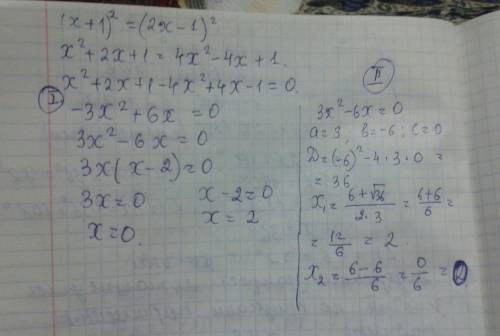 (x+1)² = (2x-1)²
x²+2x+1 = 4x²-4x+1.
x²+2x+1-4x²+4x-1=0.
I
-3x²+6x =0
3x²-6x=0
3x(x-2)=0
3x=0 x-2=0
x=0. x=2
II
3x²-6x=0
a=3; b=-6; c=0
D=(-6)²-4·3·0 =
= 36
x₁= (6+√36)/(2·3) = (6+6)/6 =
= 12/6 = 2.
x₂= (6-6)/6 = 0/6 = 0